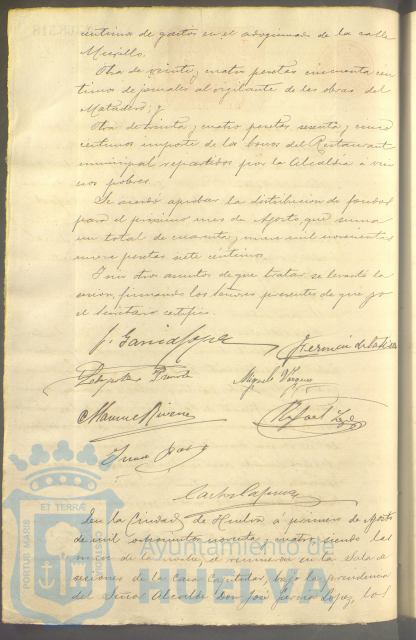 céntimos de gastos en el adoquinado de la calle
Murillo.
Otra de veinte y cuatro pesetas cincuenta cen
timos de jornales al vigilante de las obras del
Matadero; y
Otra de treinta y cuatro pesetas sesenta y cinco
céntimos importe de los bonos del Restaurant
municipal repartidos por la Alcaldía á va
rios pobres.
Se acordó aprobar la distribución de fondos
para el próximo mes de Agosto, que suma
un total de cuarenta y nueve mil novecientas
nueve pesetas siete céntimos.
Y sin otros asuntos de que tratar se levantó la
sesión, firmando los Señores presentes de que yo
el Secretario certifico.
J. García López
Germán de la
Miguel Vázquez
Manuel
Rafael
Juan
Carlos
En la Ciudad de Huelva á primero de Agosto
de mil ochocientos noventa y cuatro, siendo las
de la noche, se reunieron en la Sala de
sesiones de la Casa Capitular, bajo la presidencia
del Señor Alcalde Don José García López, los
PORTUS MARIS
ET TERRÆ
Ayuntamiento de
HUELVA